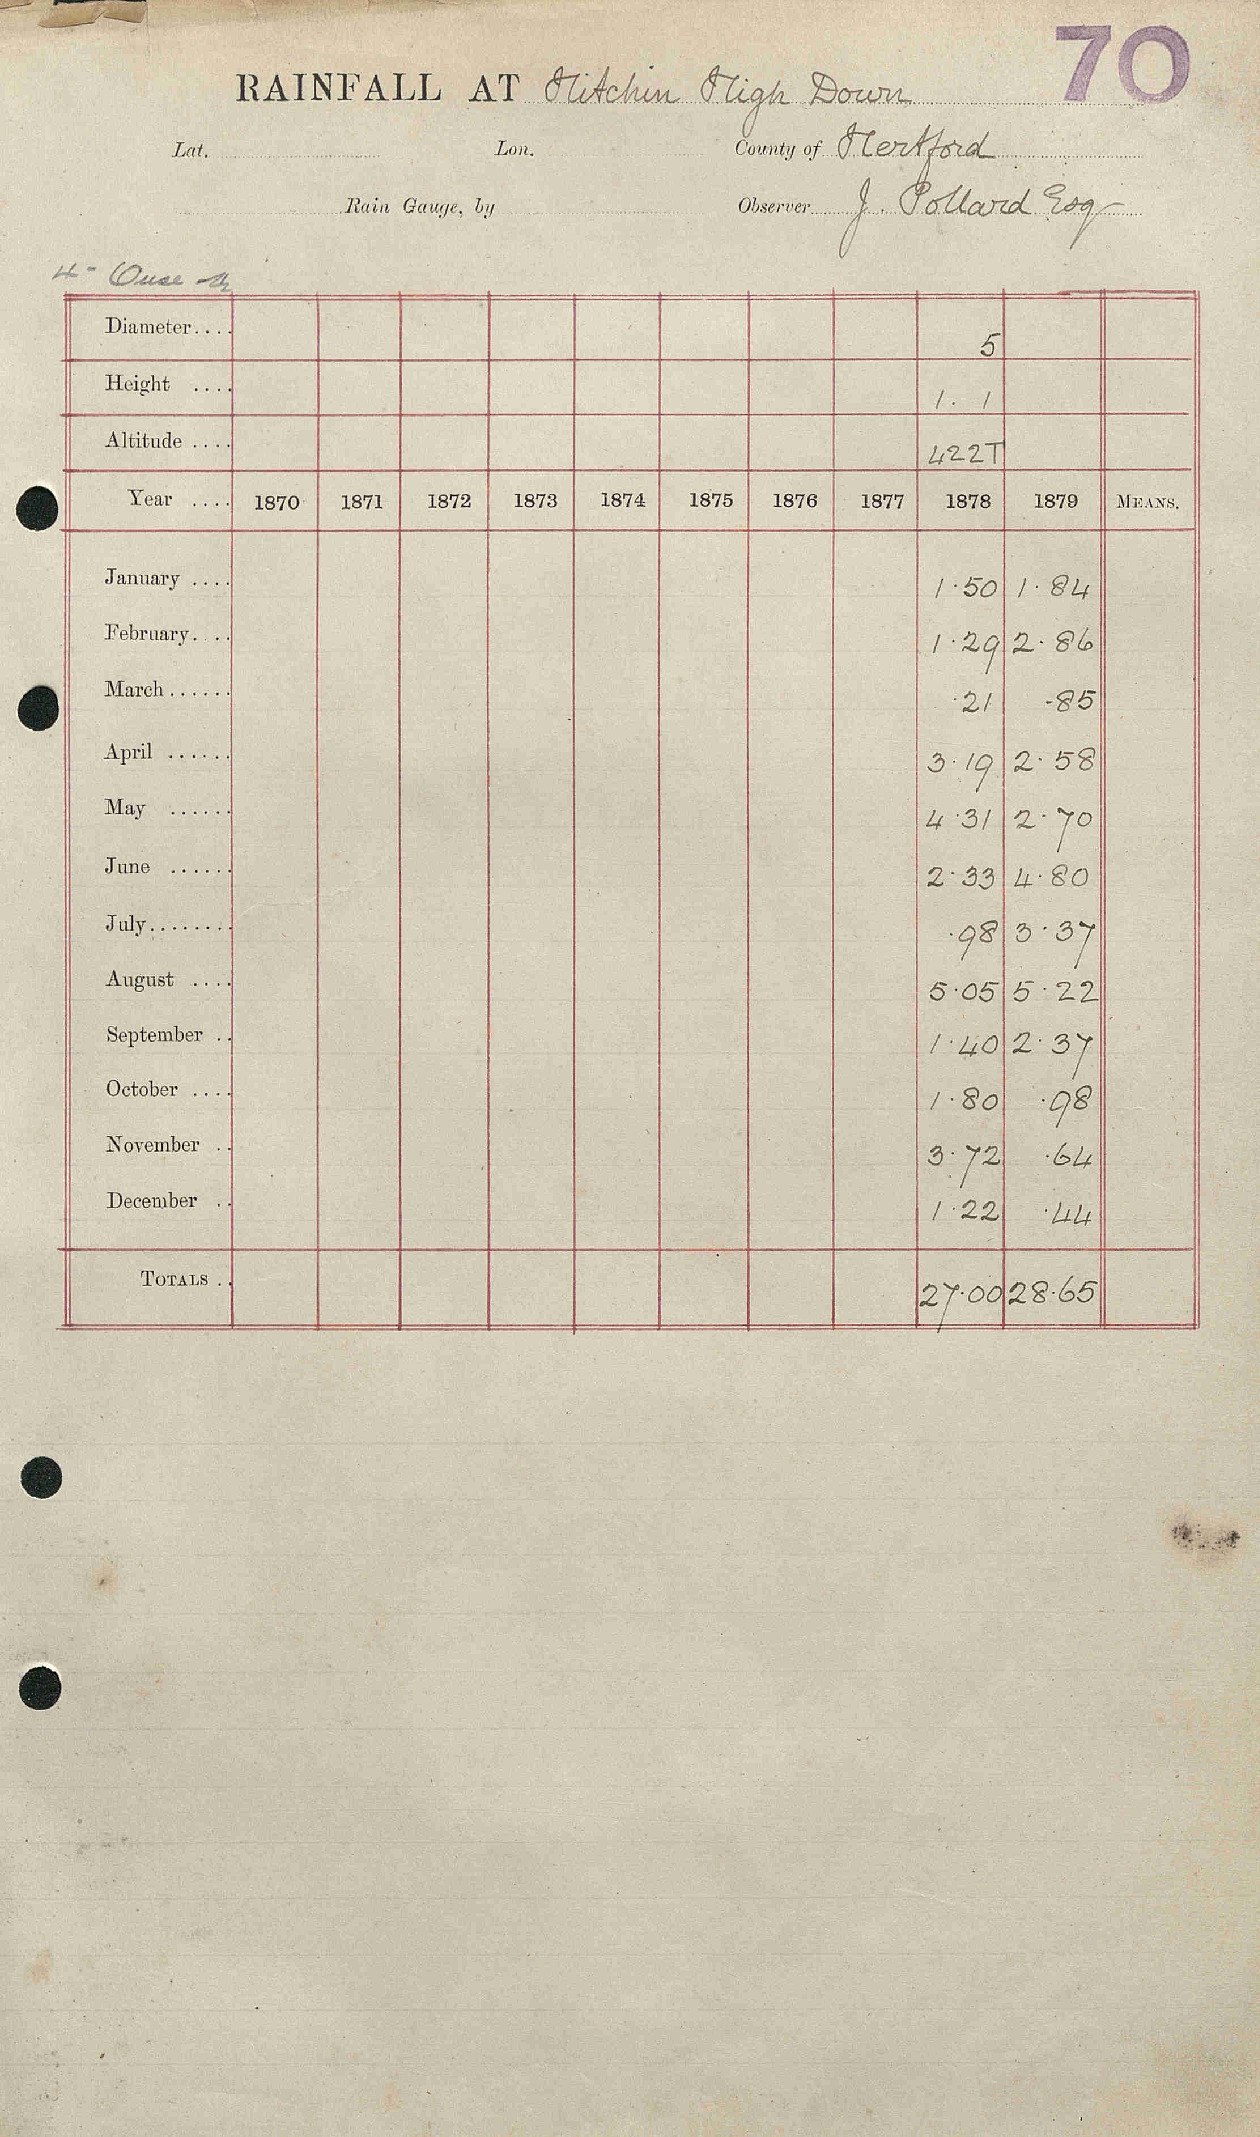 70
RAINFALL AT Hitchin High Down
Lat. Lon. County of Hertford
Rain Gauge, by Observer J. Pollard Esq
4- Ouse
Diameter.... 5
Height .... 1. 1
Altitude .... 422T
Year .... 1870 1871 1872 1873 1874 1875 1876 1877 1878 1879 MEANS.
January .... 1.50 1.84
February.... 1.29 2.86
March...... .21 .85
April ...... 3.19 2.58
May ...... 4.31 2.70
June ...... 2.33 4.80
July........ .98 3.37
August .... 5.05 5.22
September .. 1.40 2.37
October .... 1.80 .98
November .. 3.72 .64
December .. 1.22 .44
TOTALS .. 27.00 28.65